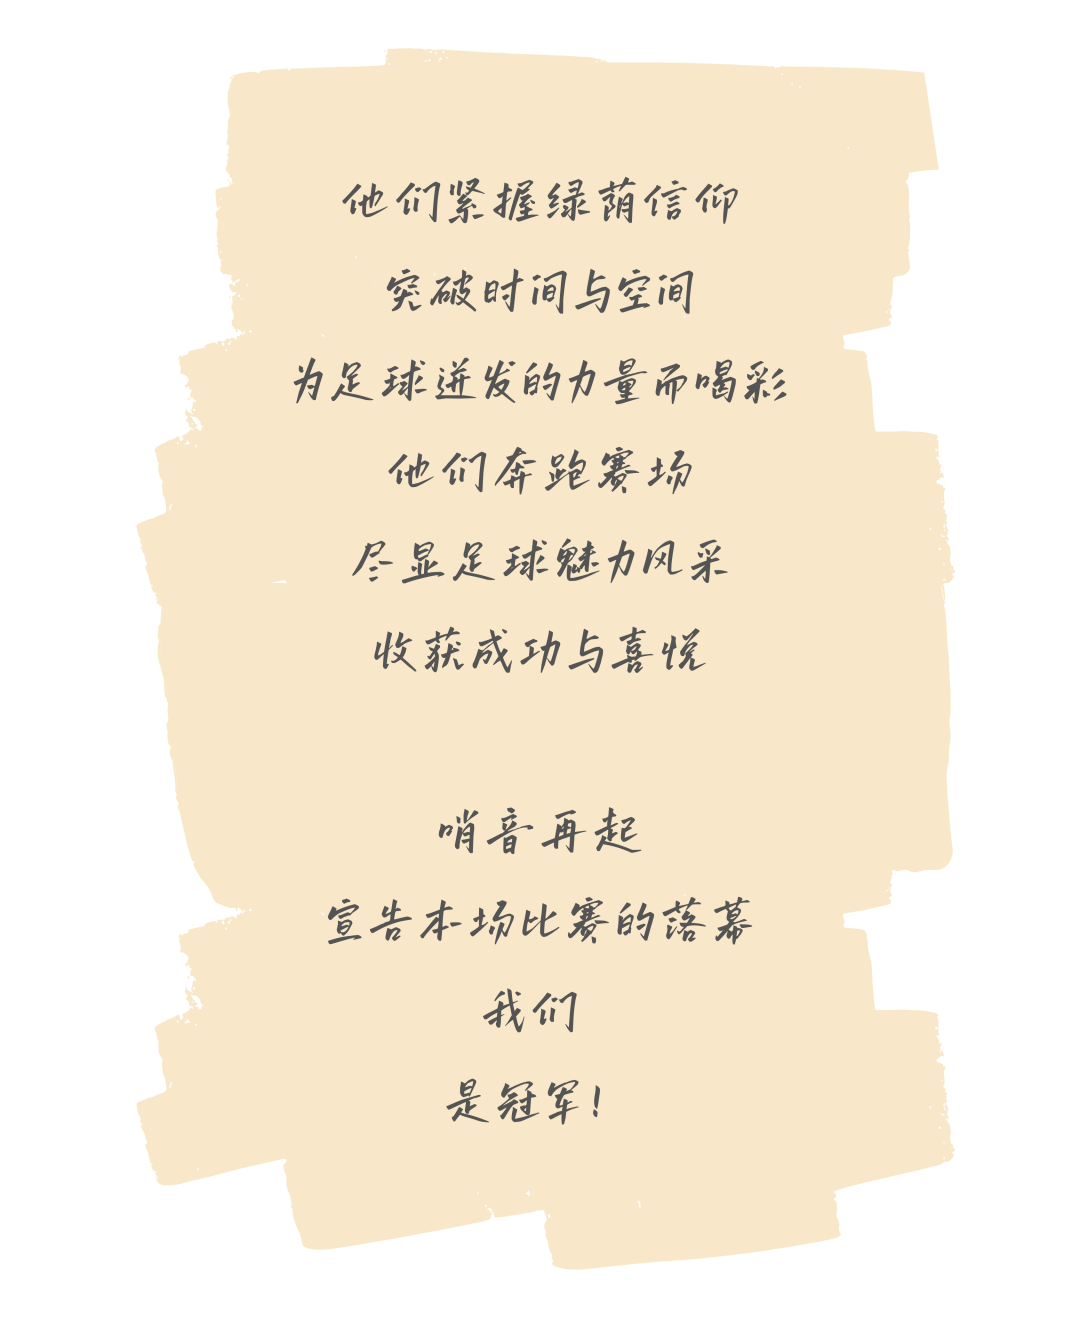 他们紧握绿荫信仰
突破时间与空间
为足球迸发的力量而喝彩
他们奔跑赛场
尽显足球魅力风采
收获成功与喜悦
哨音再起
宣告本场比赛的落幕
我们
是冠军！